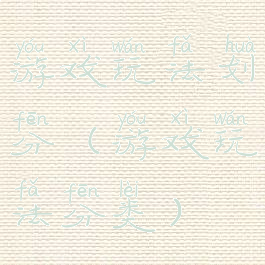 yóu xì wán fǎ huà
游戏玩法划
fēn yóu xì wán
分（游戏玩
fǎ fēn lèi
法分类）